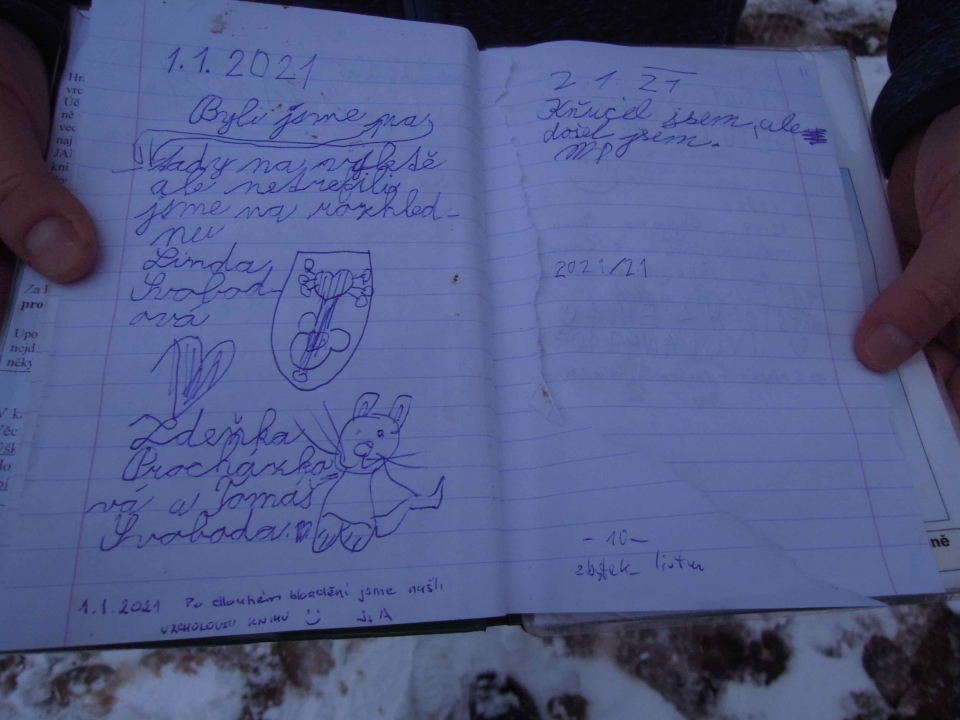 1.1.2021
Byli jsme
tady na výletě
ale netrefily
jsme na rozhled-
nu
Linda
Svobod-
ová
Zdeňka
Procházko
vá a Tomáš
Svoboda
1.1.2021 Po dlouhém bloudění jsme našli
VRCHOLOVOU KNIHU :) J, A
2 1. 21
Kňučel jsem, ale
došel jsem.
MP
2021/21
- 10 -
zbytek listu
Za
pro
Upo
nejd
něky
ně